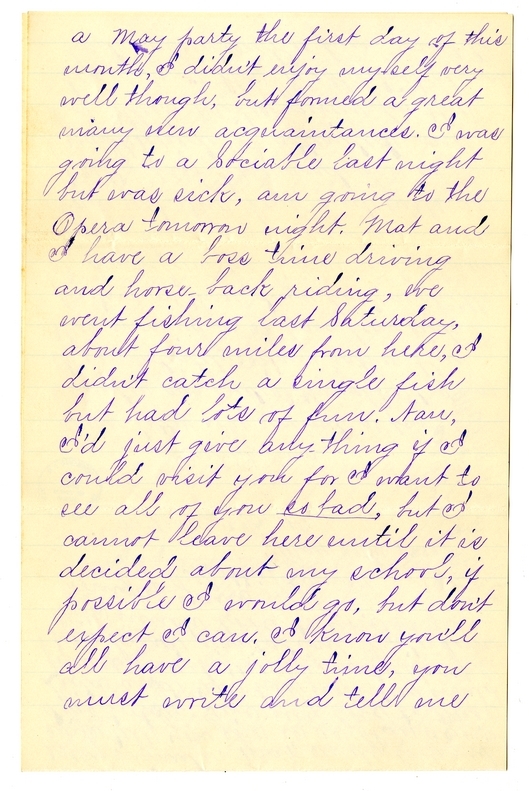 a May party the first day of this
month, I didn't enjoy myself very
well though, but formed a great
many new acquaintances. I was
going to a Sociable last night
but was sick, am going to the
Opera tomorrow night. Mat and
I have a boss time driving
and horse-back riding, we
went fishing last Saturday,
about four miles from here, I
didn't catch a single fish
but had lots of fun. Nan,
I'd just give any-thing if I
could visit you for I want to
see all of you so bad, but I
cannot leave here until it is
decided about my school, if
possible I would go, but don't
expect I can. I know you'll
all have a jolly time, you
must write and tell me